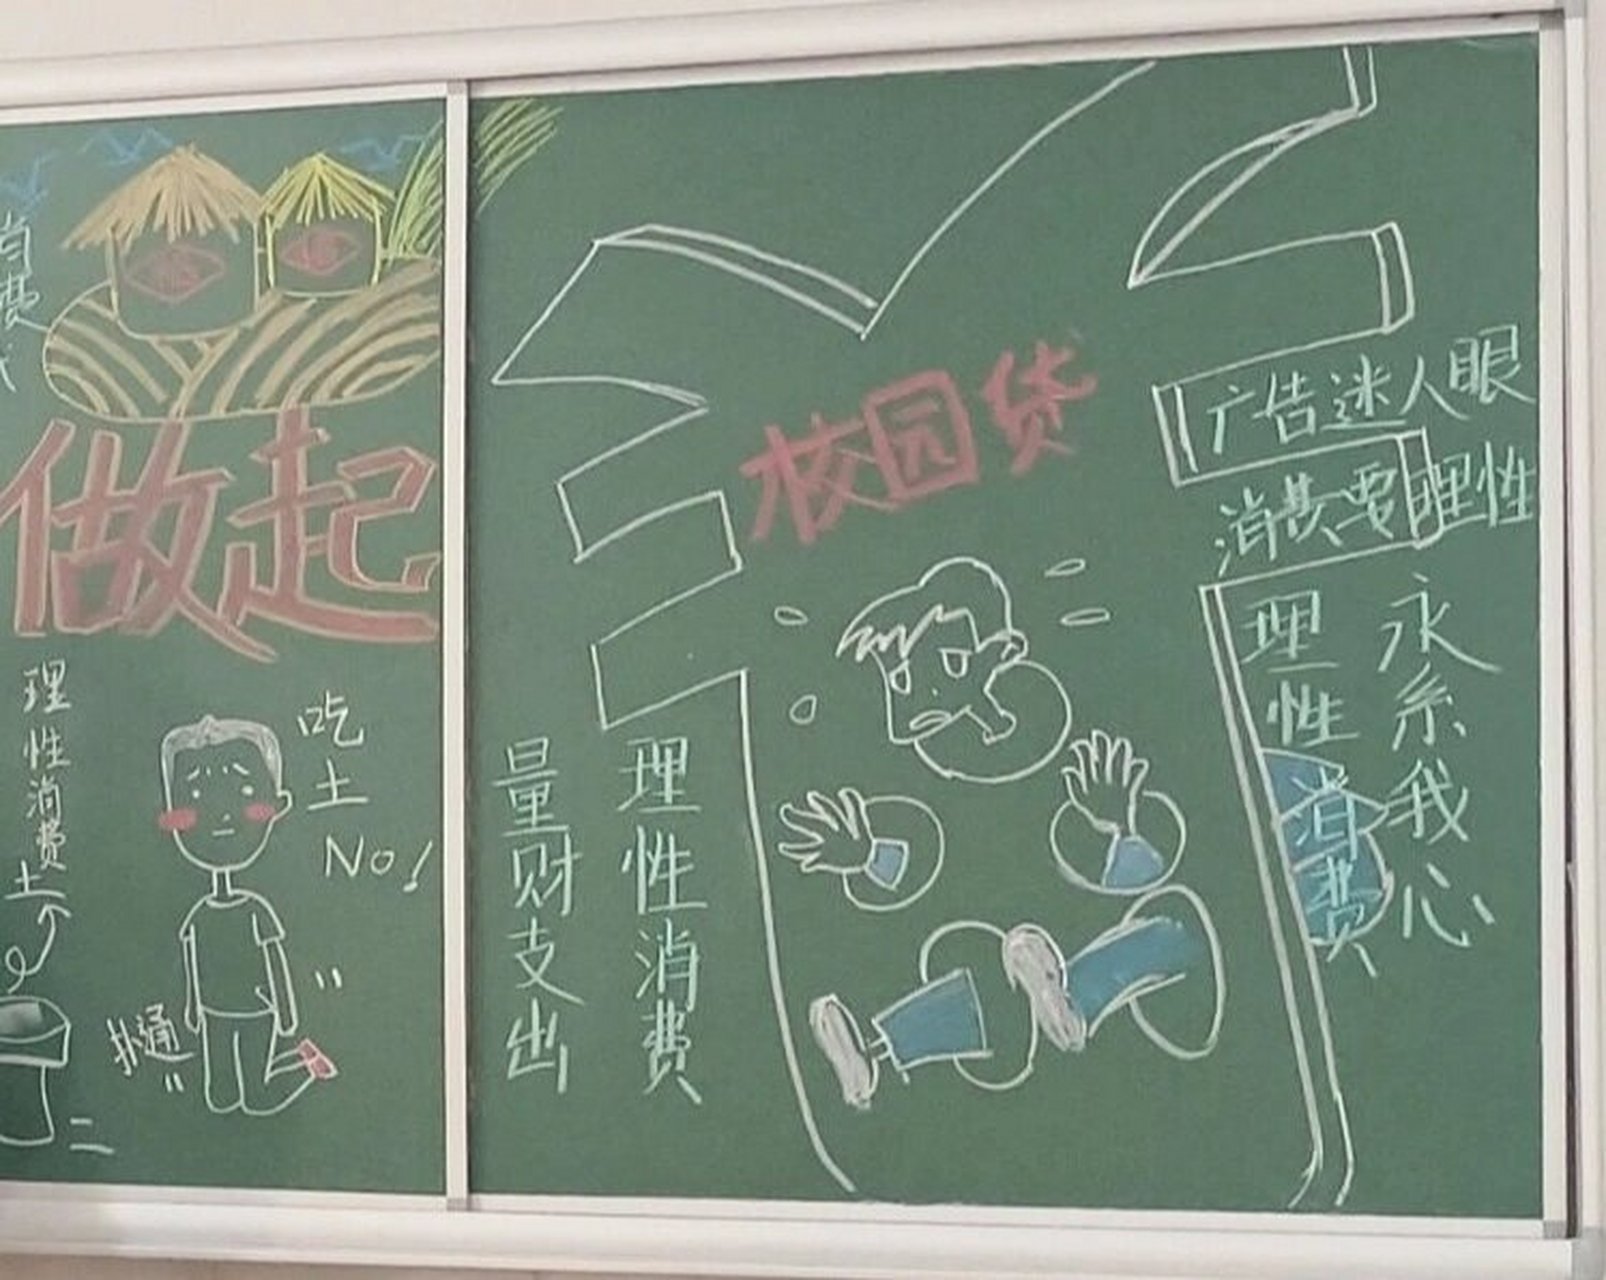 消费
做起
理性消费
土
吃土
NO!
扑通
校园贷
理性消费
量财支出
广告迷人眼
消费要理性
理性消费
永系我心